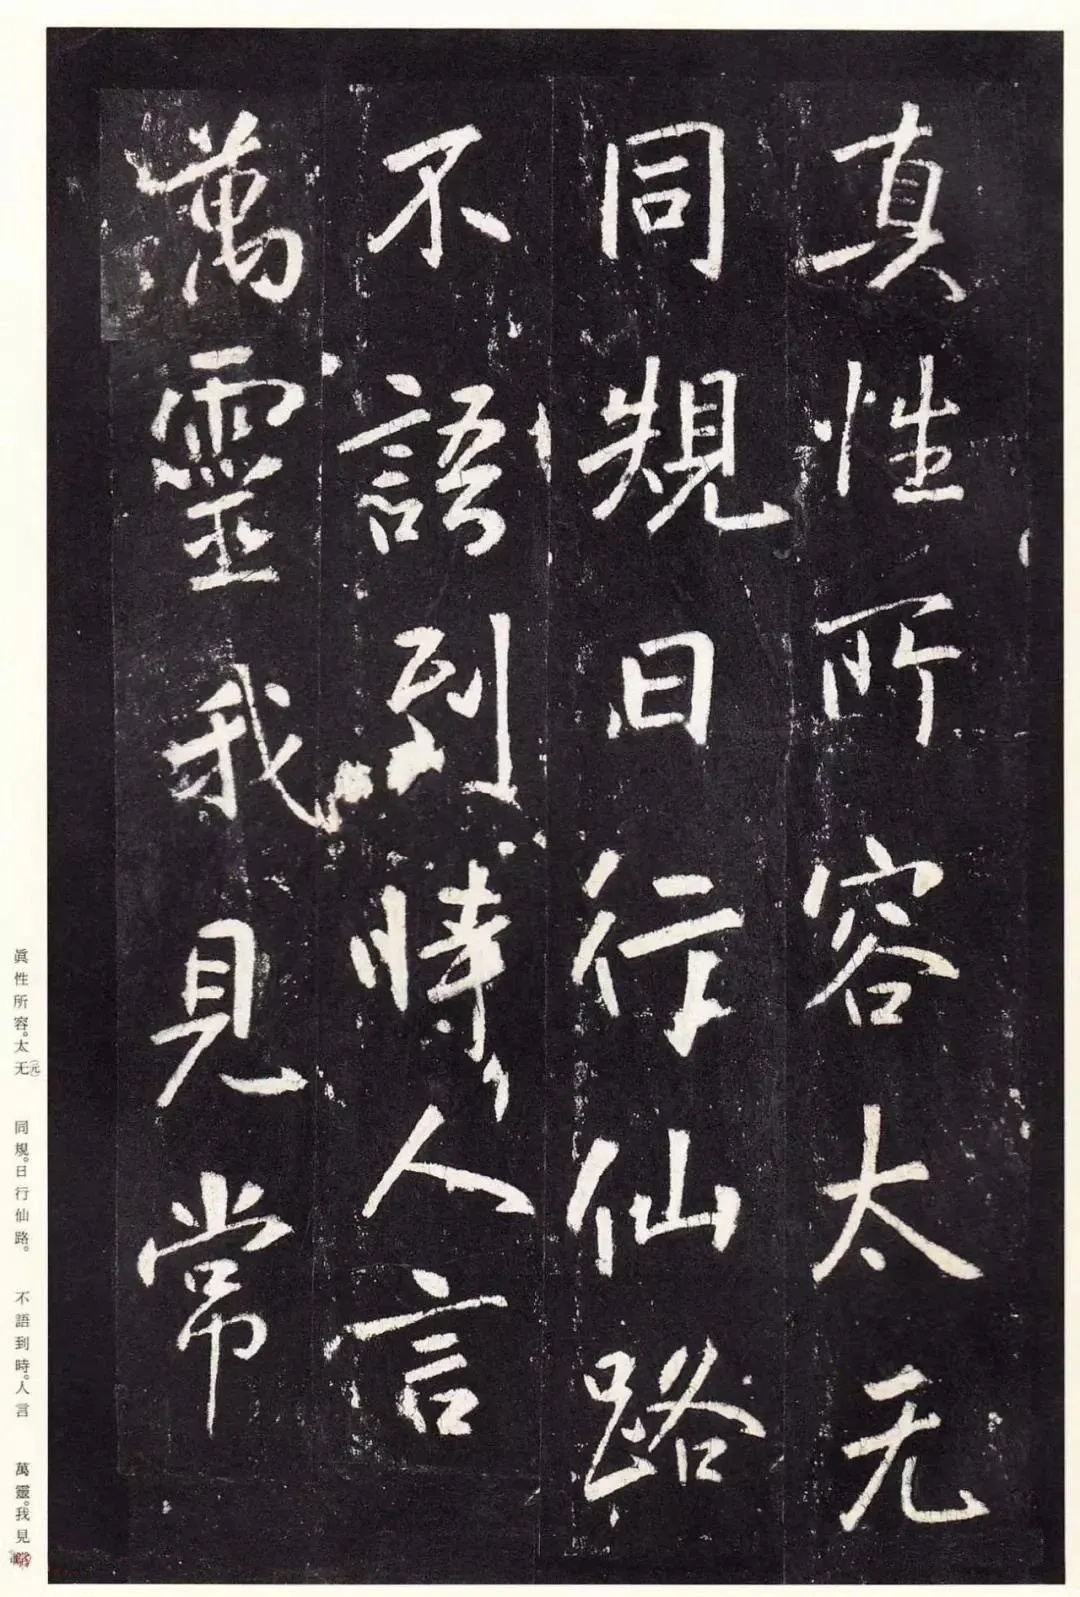 真性所容太无
同規日行仙路
不語到時人言
萬靈我見常
眞性所容。太无(元)　同規。日行仙路。　不語到時。人言　萬靈。我見